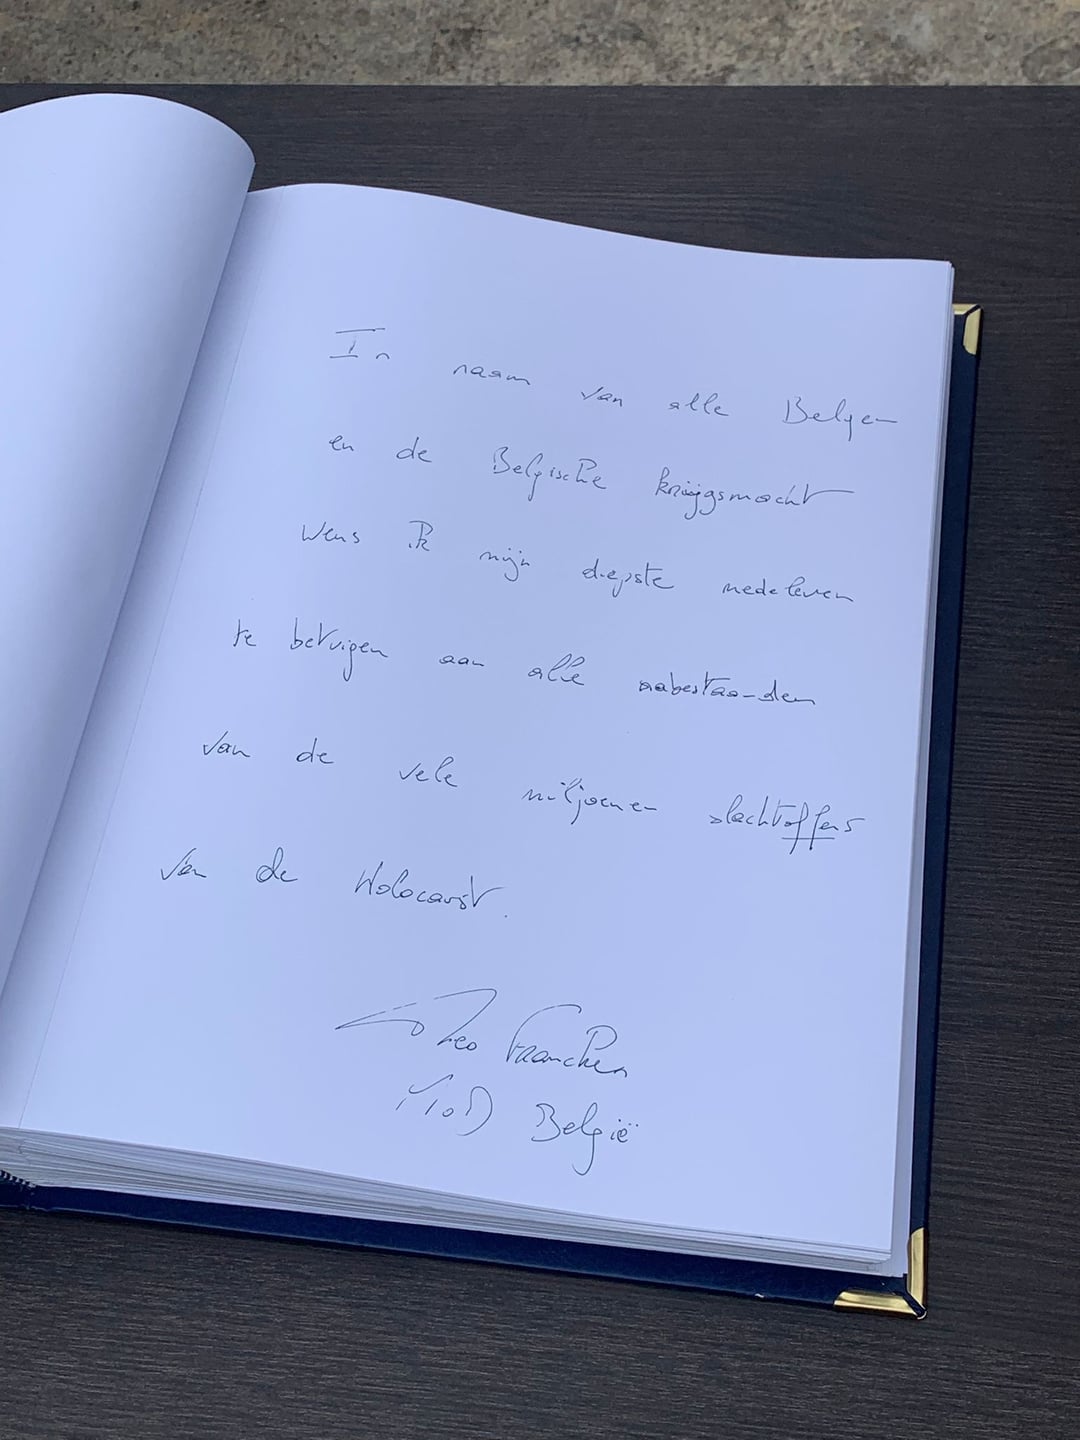 In naam van alle Belgen
en de Belgische krijgsmacht
wens ik mijn diepste medeleven
te betuigen aan alle nabestaanden
van de vele miljoenen slachtoffers
van de Holocaust.
Theo Francken
MoD België